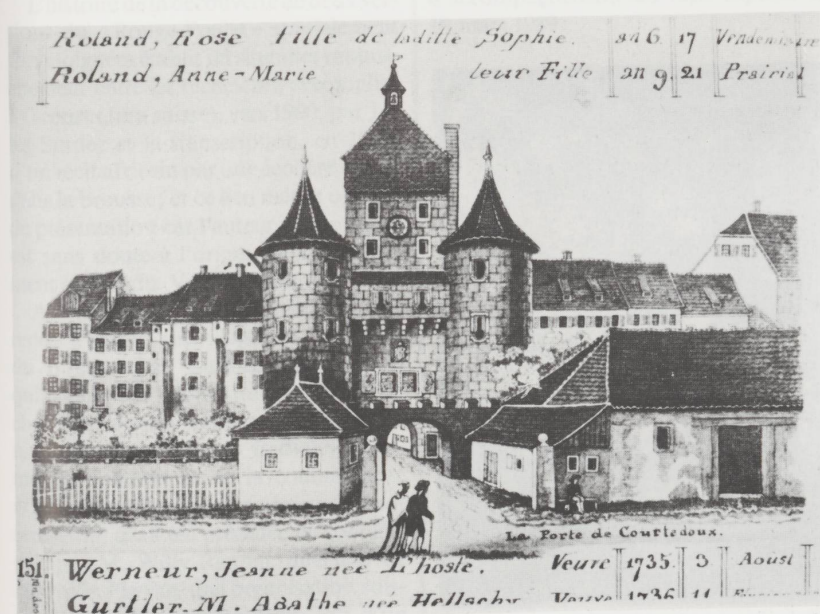 Roland, Rose Fille de ladille Sophie. an 6 17 Vendemiaire
Roland. Anne-Marie leur Fille an 9 21 Prairial
La Porte de Courtedoux.
151. Werneur, Jeanne née L'hoste. Veuve 1735 3 Aoust
Gurtler. M. Agathe née Hellschy Veuve 1736 11